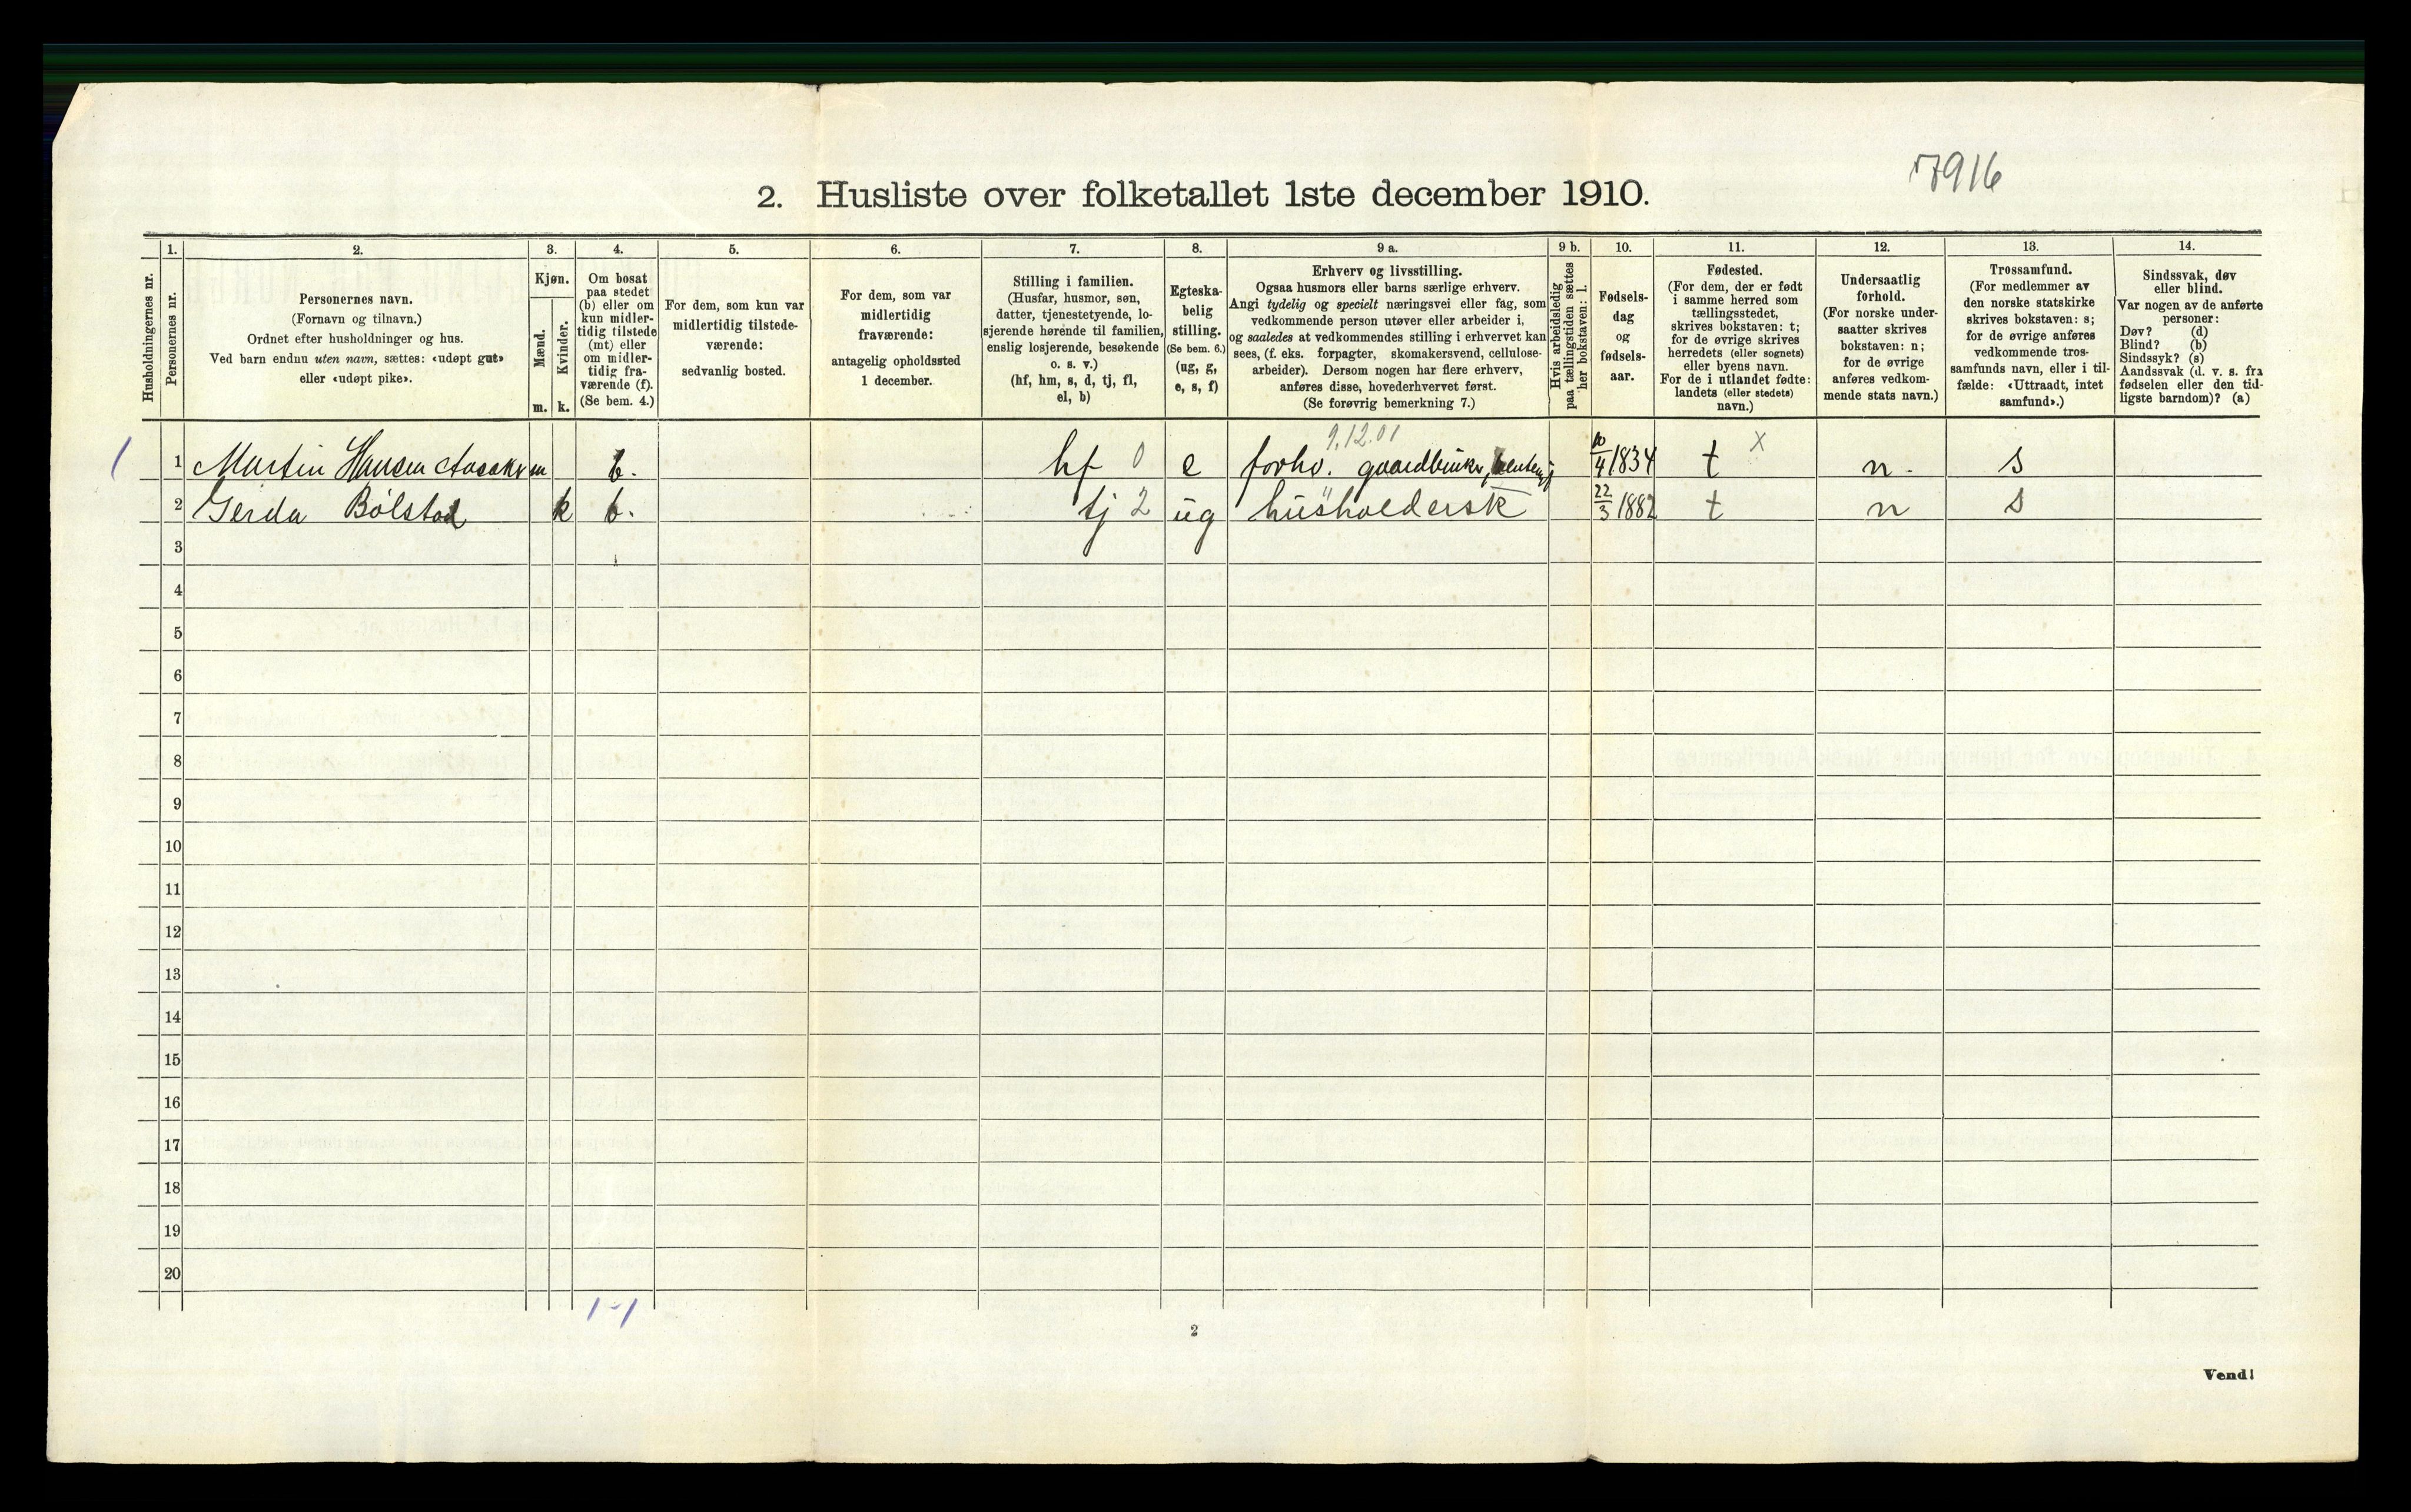 7916
2. Husliste over folketallet 1ste december 1910.
Husholdningernes nr.
1.
Personernes nr.
2.
Personernes navn.
(Fornavn og tilnavn.)
Ordnet efter husholdninger og hus.
Ved barn endnu uten navn, sættes: «udøpt gut»
eller «udøpt pike».
3.
Kjøn.
Mænd.
Kvinder.
m. k.
4.
Om bosat
paa stedet
(b) eller om
kun midler-
tidig tilstede
(mt) eller
om midler-
tidig fra-
værende (f).
(Se bem. 4.)
5.
For dem, som kun var
midlertidig tilstede-
værende:
sedvanlig bosted.
6.
For dem, som var
midlertidig
fraværende:
antagelig opholdssted
1 december.
7.
Stilling i familien.
(Husfar, husmor, søn,
datter, tjenestetyende, lo-
sjerende hørende til familien,
enslig losjerende, besøkende
o. s. v.)
(hf, hm, s, d, tj, fl,
el, b)
8.
Egteska-
belig
stilling.
(Se bem. 6.)
(ug, g,
e, s, f)
9 a.
Erhverv og livsstilling.
Ogsaa husmors eller barns særlige erhverv.
Angi tydelig og specielt næringsvei eller fag, som
vedkommende person utøver eller arbeider i,
og saaledes at vedkommendes stilling i erhvervet kan
sees, (f. eks. forpagter, skomakersvend, cellulose-
arbeider). Dersom nogen har flere erhverv,
anføres disse, hovederhvervet først.
(Se forøvrig bemerkning 7.)
9 b.
Hvis arbeidsledig
paa tællingstiden sættes
her bokstaven: l.
10.
Fødsels-
dag
og
fødsels-
aar.
11.
Fødested.
(For dem, der er født
i samme herred som
tællingsstedet,
skrives bokstaven: t;
for de øvrige skrives
herredets (eller sognets)
eller byens navn.
For de i utlandet fødte:
landets (eller stedets)
navn.)
12.
Undersaatlig
forhold.
(For norske under-
saatter skrives
bokstaven: n;
for de øvrige
anføres vedkom-
mende stats navn.)
13.
Trossamfund.
(For medlemmer av
den norske statskirke
skrives bokstaven: s;
for de øvrige anføres
vedkommende tros-
samfunds navn, eller i til-
fælde: «Uttraadt, intet
samfund».)
14.
Sindssvak, døv
eller blind.
Var nogen av de anførte
personer:
Døv? (d)
Blind? (b)
Sindssyk? (s)
Aandssvak (d. v. s. fra
fødselen eller den tid-
ligste barndom)? (a)
9.12.01
1 1 Martin Hansen m b. hf 0 e forhv. gaardbruker, 10/4 1834 t x n. s
2 Gerda Bólstad k b. tj 2 ug husholdersk 22/3 1882 t n s
3
4
5
6
7
8
9
10
11
12
13
14
15
16
17
18
19
20
1-1
2
Vend!